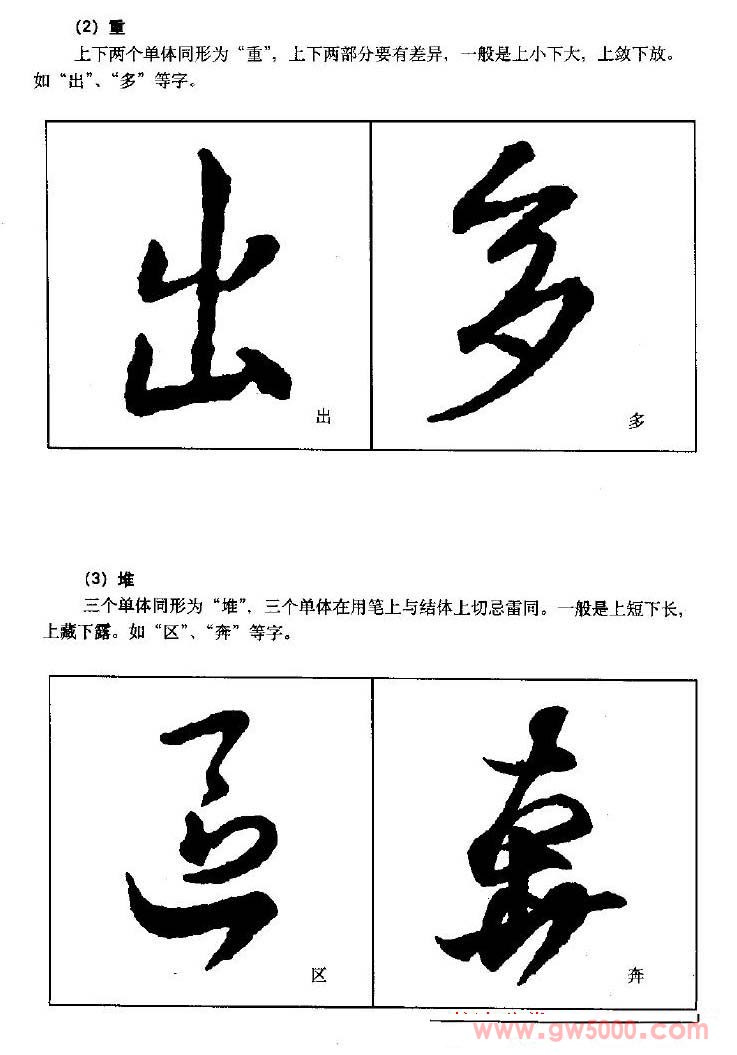 (2) 重
上下两个单体同形为“重”，上下两部分要有差异，一般是上小下大，上敛下放。
如“出”、“多”等字。
出 多
出
多
(3) 堆
三个单体同形为“堆”，三个单体在用笔上与结体上切忌雷同。一般是上短下长，
上藏下露。如“区”、“奔”等字。
区 奔
区
奔
www.gw5000.com